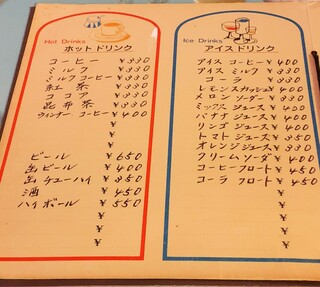 Hot Drinks
ホットドリンク
コーヒー ¥330
ミルク ¥330
ミルクコーヒー ¥330
紅茶 ¥330
ココア ¥330
昆布茶 ¥330
ウィンナーコーヒー ¥400
¥
¥
¥
ビール ¥650
缶ビール ¥400
缶チューハイ ¥350
酒 ¥450
ハイボール ¥550
¥
¥
¥
¥
Ice Drinks
アイスドリンク
アイスコーヒー ¥400
アイスミルク ¥330
コーラ ¥330
レモンスカッシュ ¥400
メロンソーダー ¥330
ミックスジュース ¥400
バナナジュース ¥400
リンゴジュース ¥400
トマトジュース ¥350
オレンジジュース ¥330
クリームソーダ ¥400
コーヒーフロート ¥450
コーラフロート ¥450
¥
¥
¥
¥
¥
¥